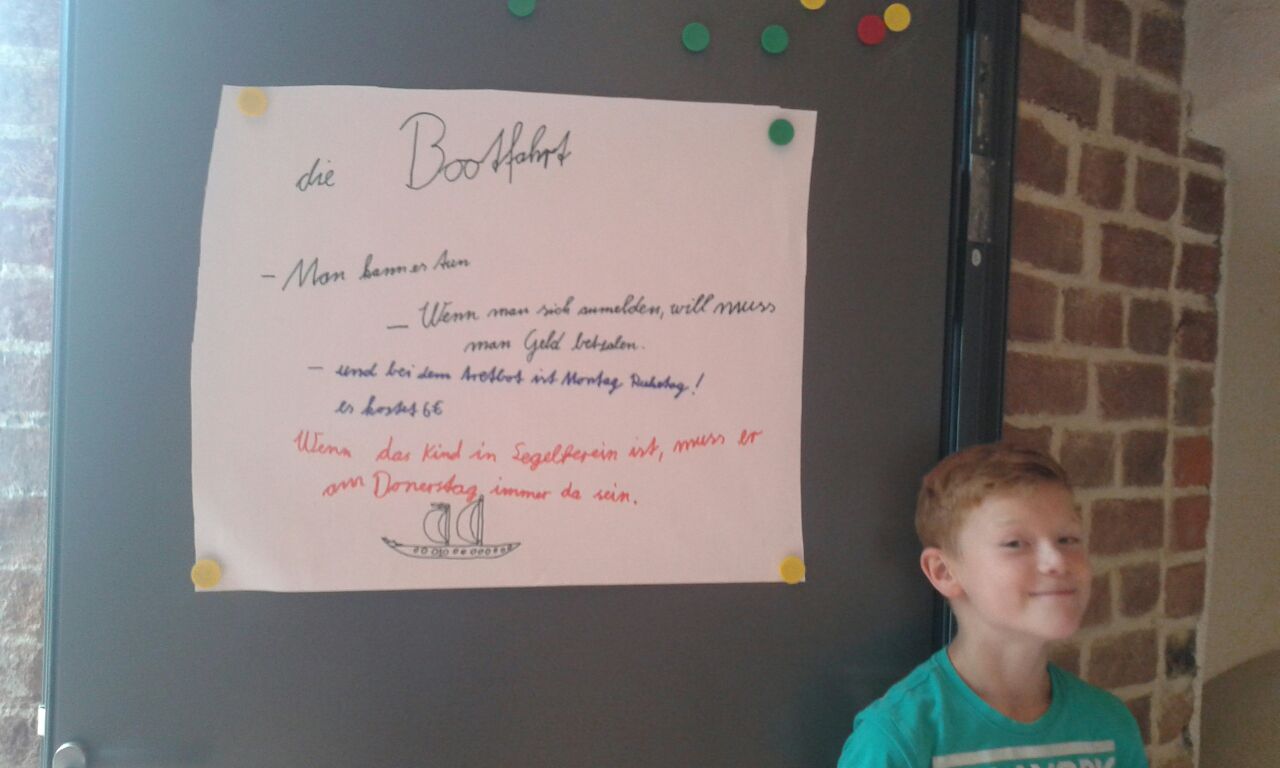 die Bootfahrt
- Man kann es tun
- Wenn man sich anmelden, will muss
man Geld betzalen.
- und bei dem Tretbot ist Montag Ruhetag!
es kostet 6€
Wenn das Kind in Segelferein ist, muss er
am Donerstag immer da sein.